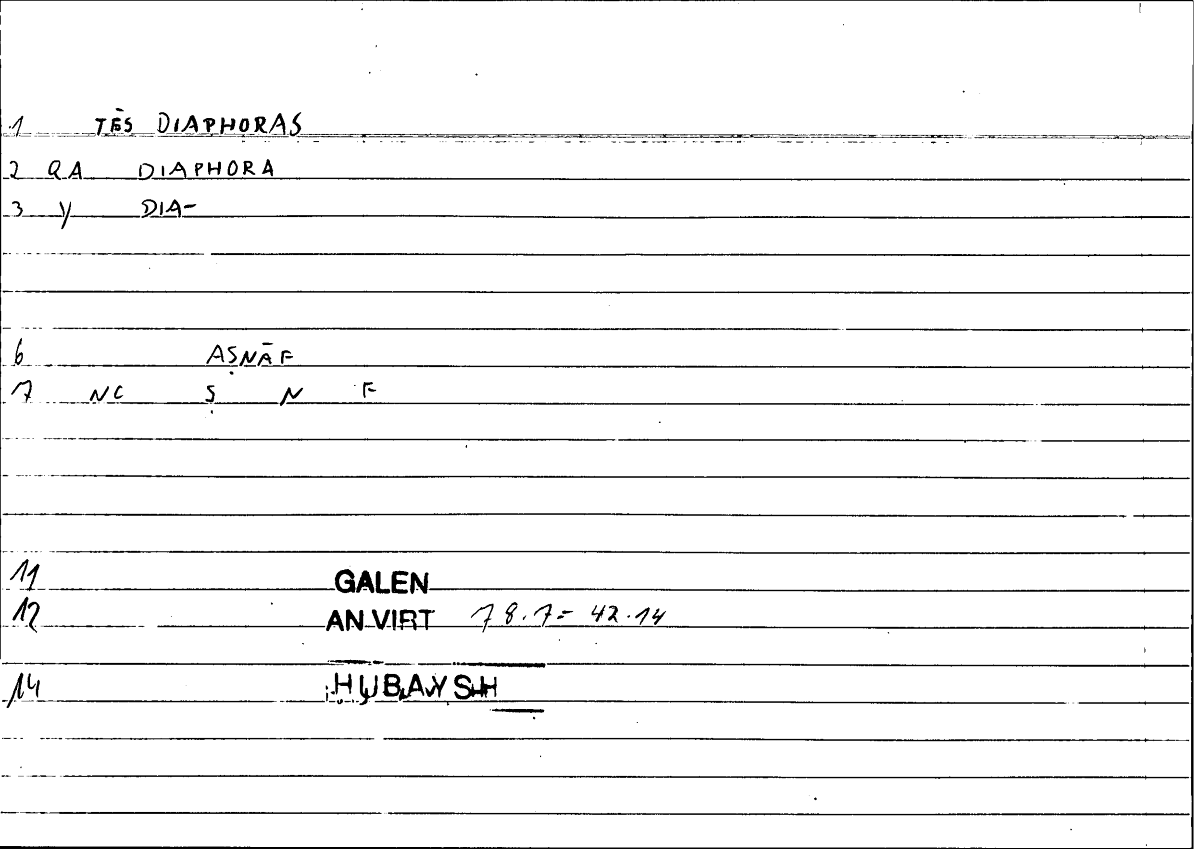 1 TĒS DIAPHORAS
2 QA DIAPHORA
3 Y DIA-
6 AṢNĀF
7 NC Ṣ N F
11 GALEN
12 AN VIRT 78.7= 42.14
14 ḤUBAYSH